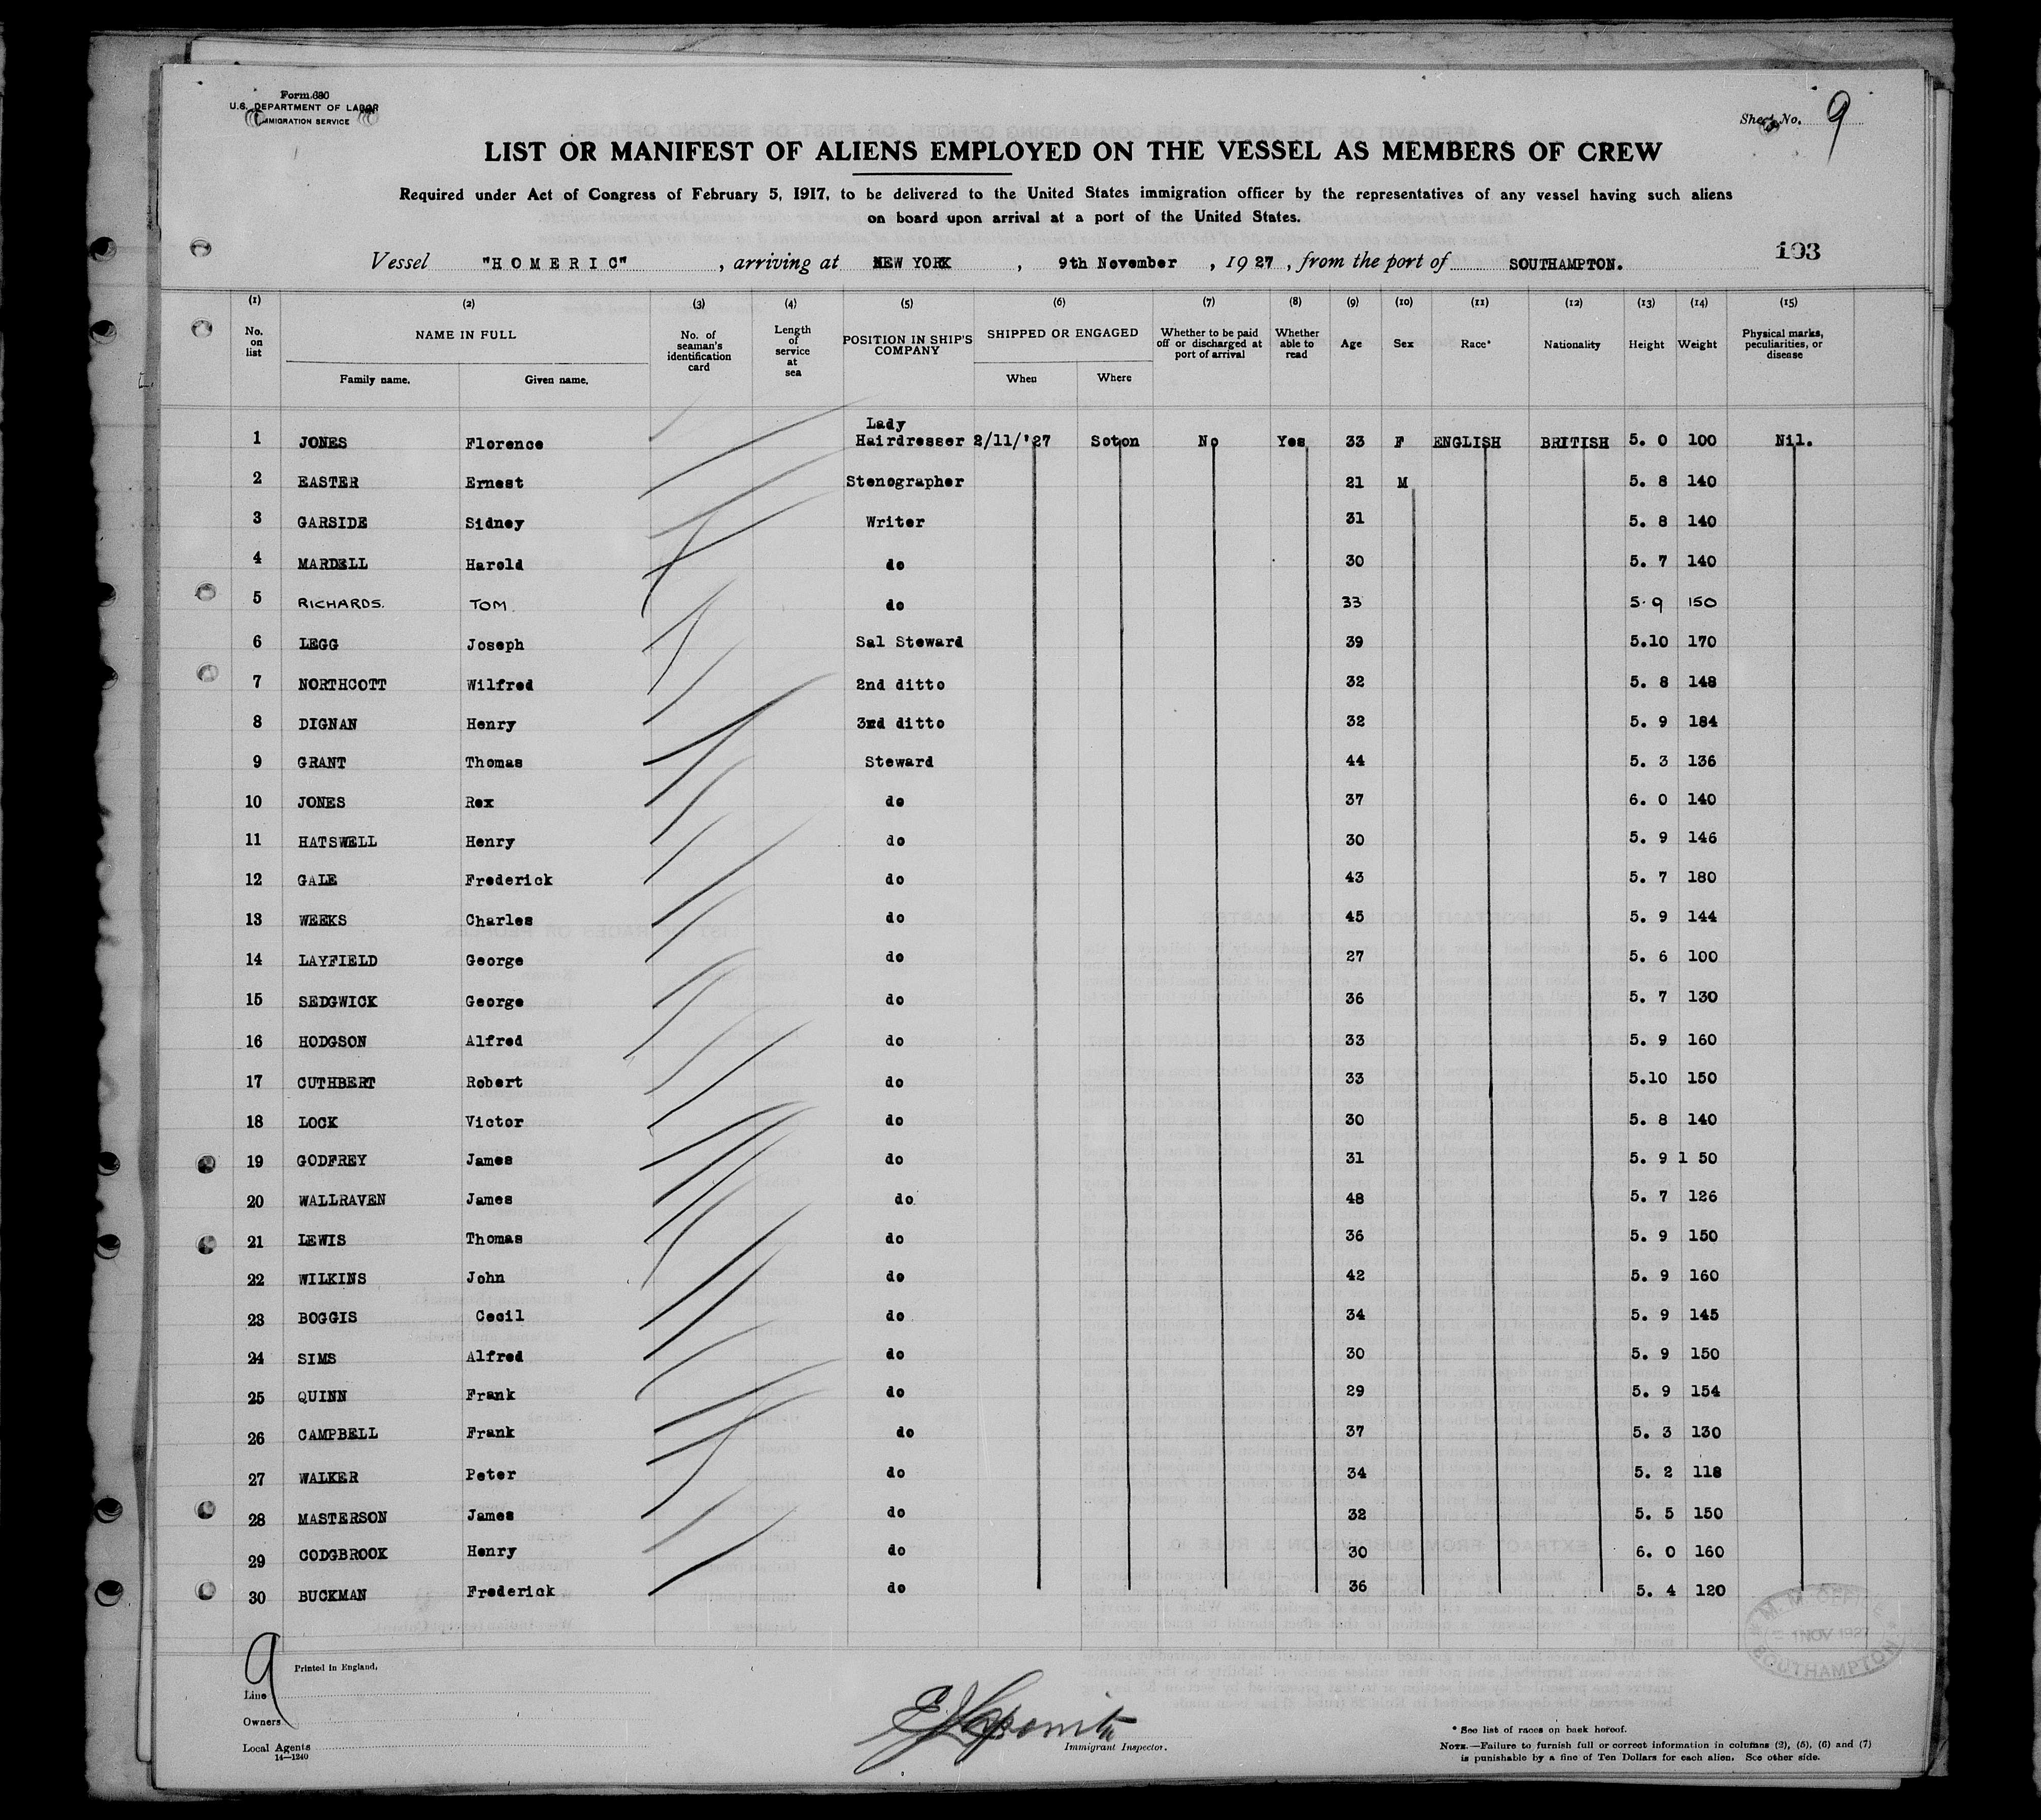 Form 680
U.S. DEPARTMENT OF LABOR
IMMIGRATION SERVICE
Sheet No. 9
LIST OR MANIFEST OF ALIENS EMPLOYED ON THE VESSEL AS MEMBERS OF CREW
Required under Act of Congress of February 5, 1917, to be delivered to the United States immigration officer by the representatives of any vessel having such aliens
on board upon arrival at a port of the United States.
193
Vessel "HOMERIC", arriving at NEW YORK, 9th November, 1927, from the port of SOUTHAMPTON.
(1) (2) (3) (4) (5) (6) (7) (8) (9) (10) (11) (12) (13) (14) (15)
No. on list NAME IN FULL No. of seaman's identification card Length of service at sea POSITION IN SHIP'S COMPANY SHIPPED OR ENGAGED Whether to be paid off or discharged at port of arrival Whether able to read Age Sex Race* Nationality Height Weight Physical marks, peculiarities, or disease
Family name. Given name. When Where
1 JONES Florence Lady Hairdresser 2/11/'27 Soton No Yes 33 F ENGLISH BRITISH 5. 0 100 Nil.
2 EASTER Ernest Stenographer 21 M 5. 8 140
3 GARSIDE Sidney Writer 31 5. 8 140
4 MARDELL Harold do 30 5. 7 140
5 RICHARDS. TOM do 33 5.9 150
6 LEGG Joseph Sal Steward 39 5.10 170
7 NORTHCOTT Wilfred 2nd ditto 32 5. 8 148
8 DIGNAN Henry 3rd ditto 32 5. 9 184
9 GRANT Thomas Steward 44 5. 3 136
10 JONES Rex do 37 6. 0 140
11 HATSWELL Henry do 30 5. 9 146
12 GALE Frederick do 43 5. 7 180
13 WEEKS Charles do 45 5. 9 144
14 LAYFIELD George do 27 5. 6 100
15 SEDGWICK George do 36 5. 7 130
16 HODGSON Alfred do 33 5. 9 160
17 CUTHBERT Robert do 33 5.10 150
18 LOCK Victor do 30 5. 8 140
19 GODFREY James do 31 5. 9 1 50
20 WALLRAVEN James do 48 5. 7 126
21 LEWIS Thomas do 36 5. 9 150
22 WILKINS John do 42 5. 9 160
23 BOGGIS Cecil do 34 5. 9 145
24 SIMS Alfred do 30 5. 9 150
25 QUINN Frank do 29 5. 9 154
26 CAMPBELL Frank do 37 5. 3 130
27 WALKER Peter do 34 5. 2 118
28 MASTERSON James do 32 5. 5 150
29 CODGBROOK Henry do 30 6. 0 160
30 BUCKMAN Frederick do 36 5. 4 120
M. M. OFFICE
1 NOV 1927
SOUTHAMPTON
9
Printed in England.
Line
Owners
Local Agents
14—1240
Immigrant Inspector.
* See list of races on back hereof.
NOTE.—Failure to furnish full or correct information in columns (2), (5), (6) and (7)
is punishable by a fine of Ten Dollars for each alien. See other side.